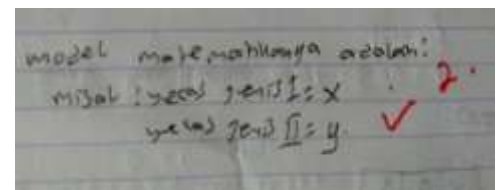 model matematikanya adalah:
misal : vecas jenis I = x 2.
vecas jenis II = y.